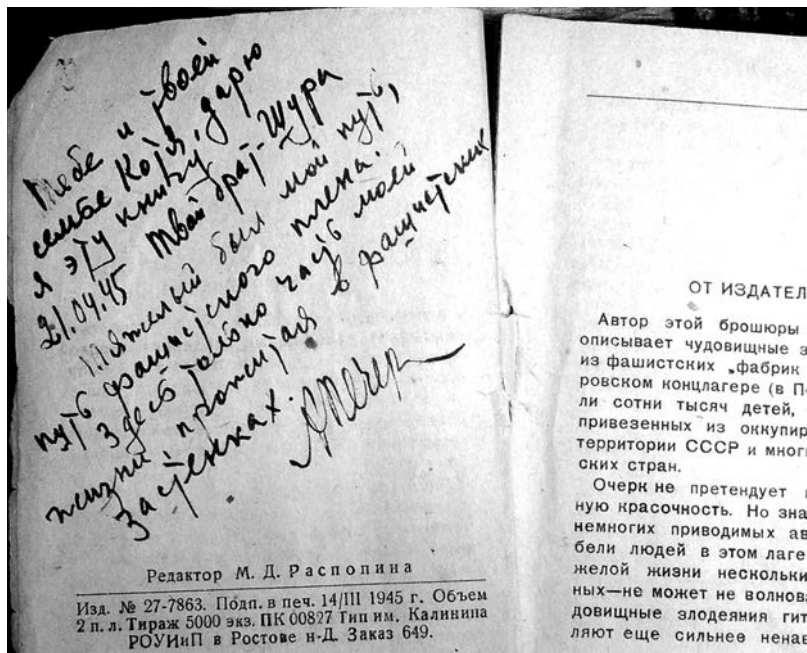 Тебе и твоей
семье Котя, дарю
я эту книгу
21.04.45 Твой брат. Шура
Тяжелый был мой путь,
путь фашистского плена.
Здесь только часть моей
жизни прожитая в фашистских
застенках.
АПечер
Редактор М. Д. Распопина
Изд. № 27-7863. Подп. в печ. 14/III 1945 г. Объем
2 п. л. Тираж 5000 экз. ПК 00827 Тип им. Калинина
РОУИиП в Ростове н-Д. Заказ 649.
ОТ ИЗДАТЕЛ
Автор этой брошюры
описывает чудовищные з
из фашистских „фабрик
ровском концлагере (в П
ли сотни тысяч детей,
привезенных из оккупир
территории СССР и мног
ских стран.
Очерк не претендует
ную красочность. Но зна
немногих приводимых ав
бели людей в этом лаге
желой жизни нескольки
ных—не может не волнов
довищные злодеяния гит
ляют еще сильнее ненав